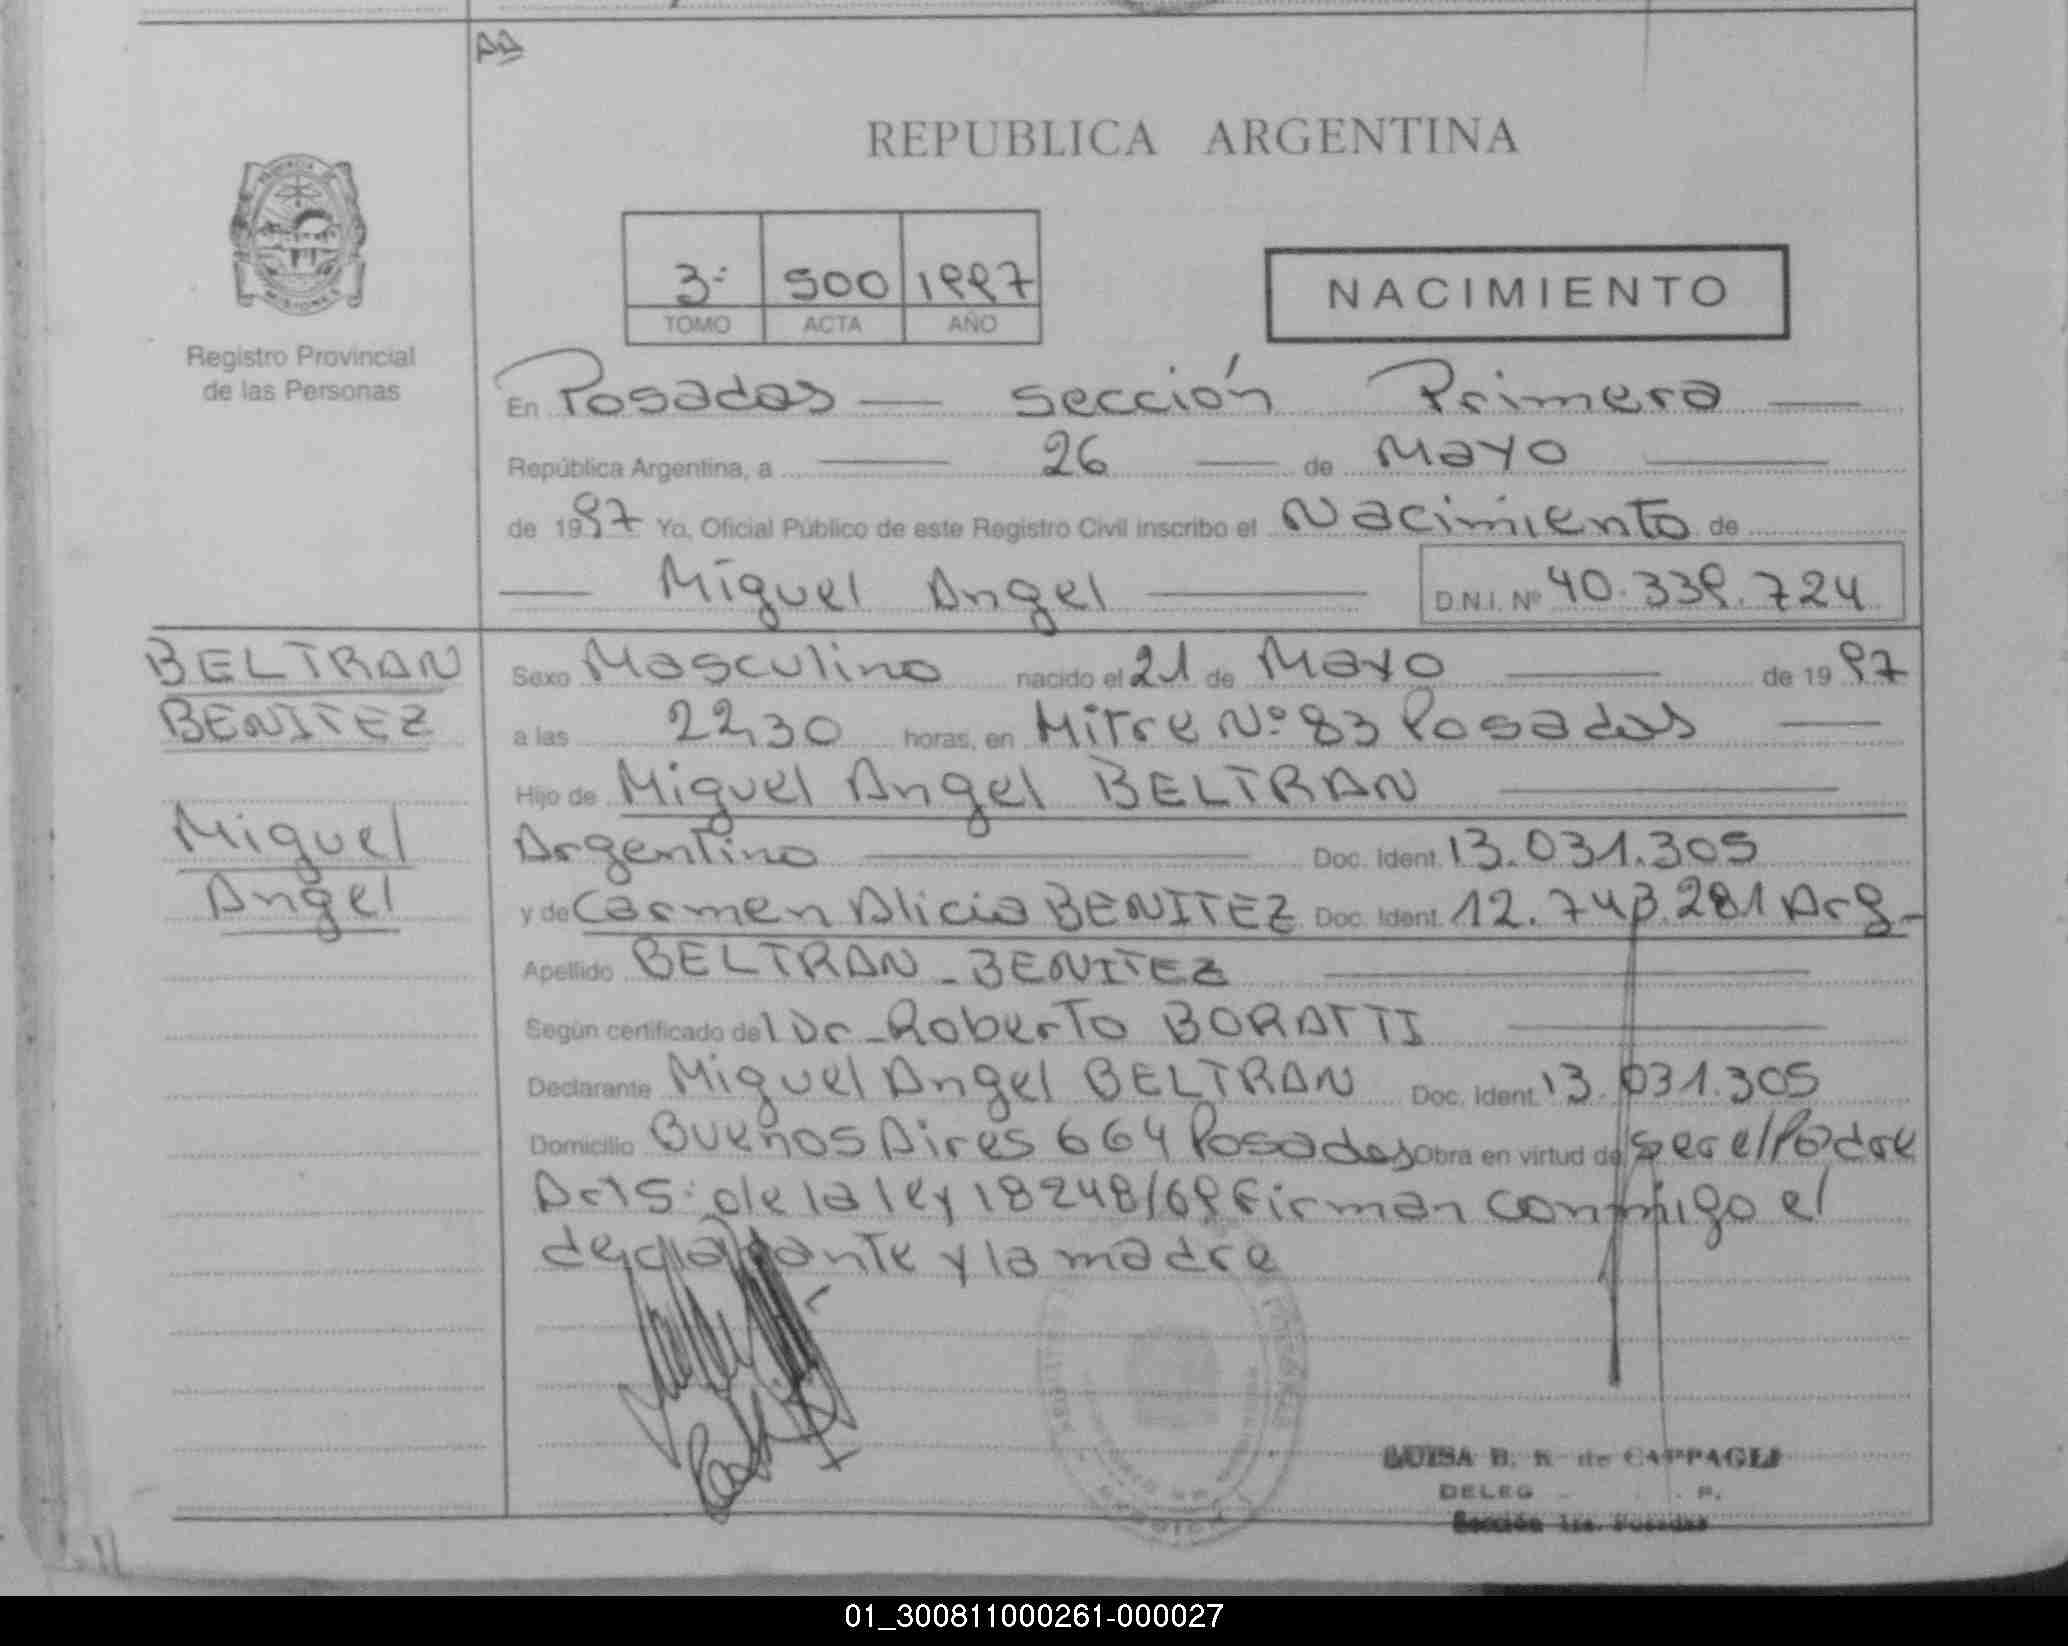 AA
REPUBLICA ARGENTINA
PROVINCIA DE
MISIONES
Registro Provincial
de las Personas
3: 500 1997
TOMO ACTA AÑO
NACIMIENTO
En Posadas — sección Primera —
República Argentina, a — 26 — de Mayo —
de 1997 Yo, Oficial Público de este Registro Civil inscribo el Nacimiento de
— Miguel Angel —
D.N.I. Nº 40.339.724
BELTRAN
BENITEZ
Miguel
Angel
Sexo Masculino nacido el 21 de Mayo — de 1997
a las 22,30 horas, en Mitre Nº 83 Posadas —
Hijo de Miguel Angel BELTRAN —
Argentino — Doc. Ident. 13.031.305
y de Carmen Alicia BENITEZ Doc. Ident. 12.743.281 Arg-
Apellido BELTRAN - BENITEZ —
Según certificado del Dr - Roberto BORATTI —
Declarante Miguel Angel BELTRAN Doc. Ident. 13.031.305
Domicilio Buenos Aires 664 Posadas Obra en virtud de ser el Padre
Art 5: de la ley 18248/69 Firman conmigo el
declarante y la madre
LUISA B. K de CAPPAGLI
DELEG
Sección 1ra. Posadas
01_300811000261-000027